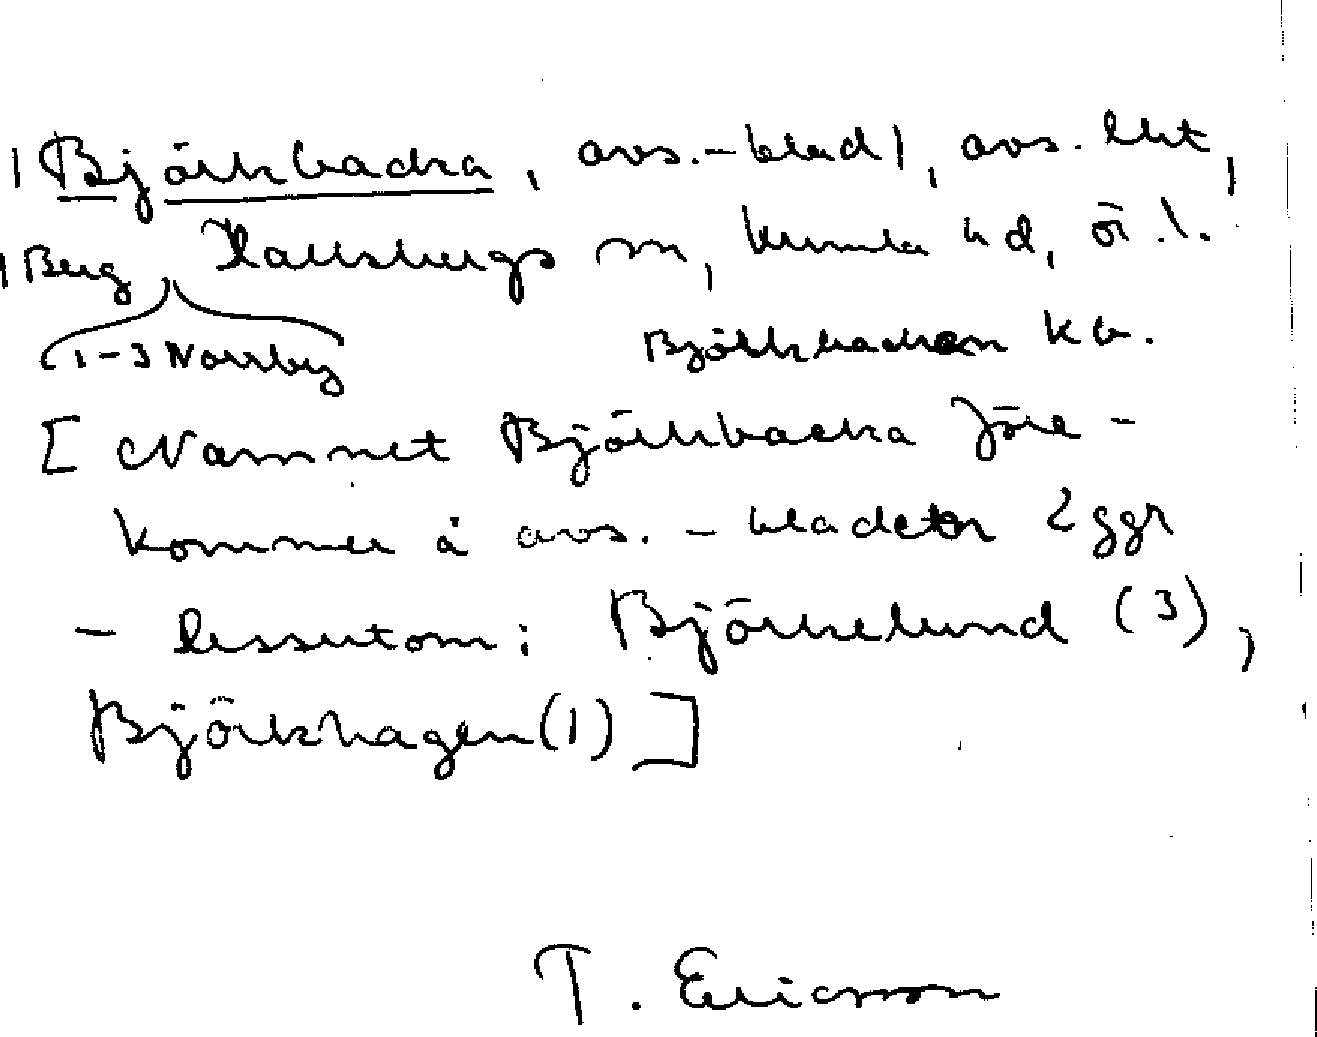 |Björkbacka, avs.-blad|, avs. lht,
|Berg, Hallsbergs sn, Kumla hd, ör. l.
1-3 Norrby Björkbacken kb.
[Namnet Björkbacka före-
kommer å avs.-bladet 2 ggr
- dessutom: Björkelund (3),
Björkhagen (1)]
T. Ericsson